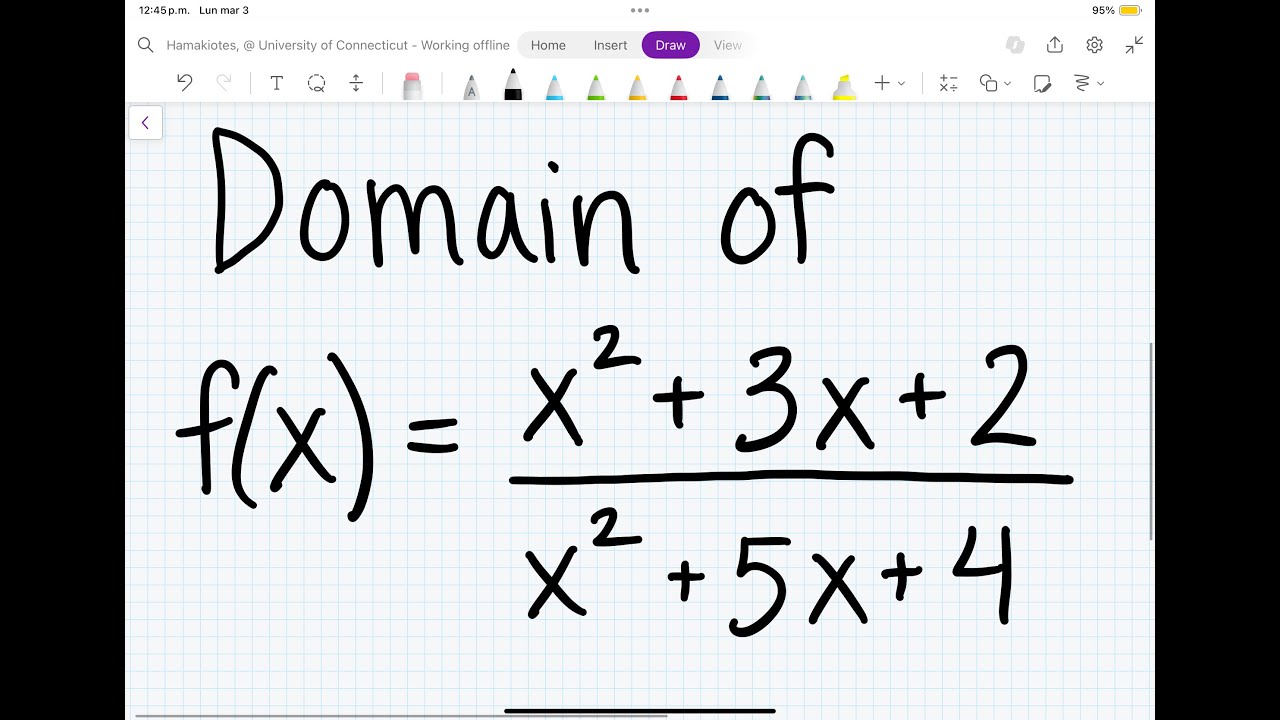 12:45 p.m. Lun mar 3 95%
Hamakiotes, @ University of Connecticut - Working offline Home Insert Draw View
T A
Domain of
f(x) = x² + 3x + 2
x² + 5x + 4